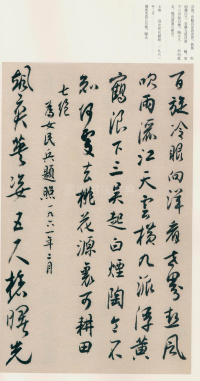 百旋冷眼向洋看世界热风
吹雨洒江天云横九派浮黄
鹤浪下三吴起白烟陶令不
知何处去桃花源里可耕田
七绝
为女民兵题照一九六一年二月
飒爽英姿五尺枪曙光